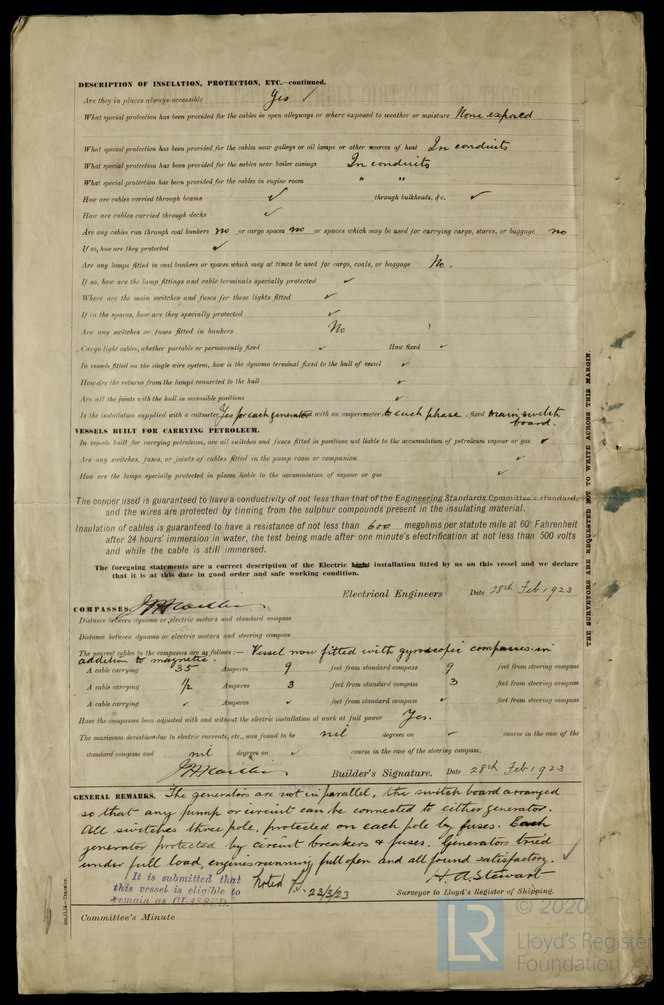 DESCRIPTION OF INSULATION, PROTECTION, ETC.—continued.
Are they in places always accessible Yes ✓
What special protection has been provided for the cables in open alleyways or where exposed to weather or moisture None exposed
What special protection has been provided for the cables near galleys or oil lamps or other sources of heat In conduits
What special protection has been provided for the cables near boiler casings In conduits
What special protection has been provided for the cables in engine room " "
How are cables carried through beams ✓ through bulkheads, &c. ✓
How are cables carried through decks ✓
Are any cables run through coal bunkers no or cargo spaces no or spaces which may be used for carrying cargo, stores, or baggage no
If so, how are they protected ✓
Are any lamps fitted in coal bunkers or spaces which may at times be used for cargo, coals, or baggage No.
If so, how are the lamp fittings and cable terminals specially protected ✓
Where are the main switches and fuses for these lights fitted ✓
If in the spaces, how are they specially protected ✓
Are any switches or fuses fitted in bunkers No
Cargo light cables, whether portable or permanently fixed ✓ How fixed ✓
In vessels fitted on the single wire system, how is the dynamo terminal fixed to the hull of vessel ✓
How are the returns from the lamps connected to the hull ✓
Are all the joints with the hull in accessible positions ✓
Is the installation supplied with a voltmeter Yes for each generator with an amperemeter to each phase, fixed main switch board.
VESSELS BUILT FOR CARRYING PETROLEUM.
In vessels built for carrying petroleum, are all switches and fuses fitted in positions not liable to the accumulation of petroleum vapour or gas ✓
Are any switches, fuses, or joints of cables fitted in the pump room or companion ✓
How are the lamps specially protected in places liable to the accumulation of vapour or gas ✓
The copper used is guaranteed to have a conductivity of not less than that of the Engineering Standards Committee's standard,
and the wires are protected by tinning from the sulphur compounds present in the insulating material.
Insulation of cables is guaranteed to have a resistance of not less than 600 megohms per statute mile at 60° Fahrenheit
after 24 hours' immersion in water, the test being made after one minute's electrification at not less than 500 volts
and while the cable is still immersed.
The foregoing statements are a correct description of the Electric Light installation fitted by us on this vessel and we declare
that it is at this date in good order and safe working condition.
Electrical Engineers Date 28th Feb 1923
COMPASSES.
Distance between dynamo or electric motors and standard compass
Distance between dynamo or electric motors and steering compass
The nearest cables to the compasses are as follows:— Vessel now fitted with gyroscopic compasses in
addition to magnetic.
A cable carrying 35 Amperes 9 feet from standard compass 9 feet from steering compass
A cable carrying 1/2 Amperes 3 feet from standard compass 3 feet from steering compass
A cable carrying ✓ Amperes ✓ feet from standard compass ✓ feet from steering compass
Have the compasses been adjusted with and without the electric installation at work at full power Yes.
The maximum deviation due to electric currents, etc., was found to be nil degrees on ✓ course in the case of the
standard compass and nil degrees on ✓ course in the case of the steering compass.
Builder's Signature. Date 28th Feb 1923
GENERAL REMARKS. The generators are not in parallel, the switch board arranged
so that any pump or circuit can be connected to either generator.
All switches three pole, protected on each pole by fuses. Each
generator protected by circuit breakers & fuses. Generators tried
under full load, engines running full open and all found satisfactory. ✓
It is submitted that
this vessel is eligible to
remain as CLASSED.
Noted
23/3/23
H. A. Stewart
Surveyor to Lloyd's Register of Shipping.
Committee's Minute
THE SURVEYORS ARE REQUESTED NOT TO WRITE ACROSS THIS MARGIN.
LR
© 2020
Lloyd's Register
Foundation